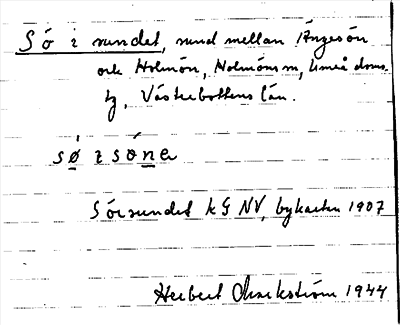 Sörsundet, sund mellan Ängesön
och Holmön, Holmöns sn, Umeå doms.
tg, Västerbottens län.
sǿrsóne
Sörsundet kG NV, bykartan 1907
Herbert Markström 1944